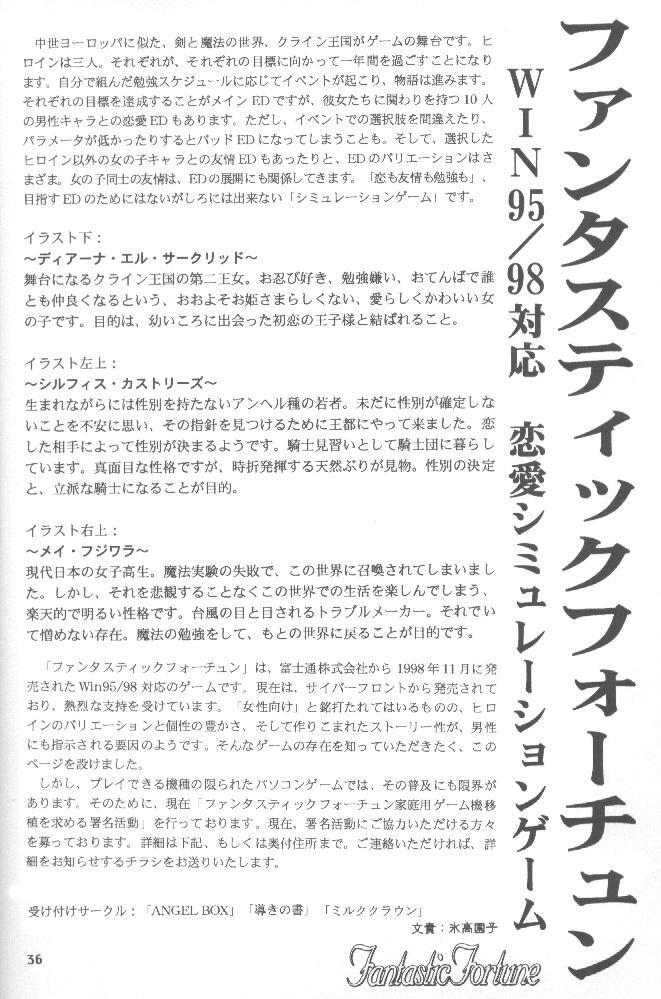 ファンタスティックフォーチュン
WIN95/98対応 恋愛シミュレーションゲーム
中世ヨーロッパに似た、剣と魔法の世界、クライン王国がゲームの舞台です。ヒ
ロインは三人。それぞれが、それぞれの目標に向かって一年間を過ごすことになり
ます。自分で組んだ勉強スケジュールに応じてイベントが起こり、物語は進みます。
それぞれの目標を達成することがメインEDですが、彼女たちに関わりを持つ10人
の男性キャラとの恋愛EDもあります。ただし、イベントでの選択肢を間違えたり、
パラメータが低かったりするとバッドEDになってしまうことも。そして、選択した
ヒロイン以外の女の子キャラとの友情EDもあったりと、EDのバリエーションはさ
まざま。女の子同士の友情は、EDの展開にも関係してきます。「恋も友情も勉強も」、
目指すEDのためにはないがしろには出来ない「シミュレーションゲーム」です。
イラスト下：
～ディアーナ・エル・サークリッド～
舞台になるクライン王国の第二王女。お忍び好き、勉強嫌い、おてんばで誰
とも仲良くなるという、おおよそお姫さまらしくない、愛らしくかわいい女
の子です。目的は、幼いころに出会った初恋の王子様と結ばれること。
イラスト左上：
～シルフィス・カストリーズ～
生まれながらには性別を持たないアンヘル種の若者。未だに性別が確定しな
いことを不安に思い、その指針を見つけるために王都にやって来ました。恋
した相手によって性別が決まるようです。騎士見習いとして騎士団に暮らし
ています。真面目な性格ですが、時折発揮する天然ぶりが見物。性別の決定
と、立派な騎士になることが目的。
イラスト右上：
～メイ・フジワラ～
現代日本の女子高生。魔法実験の失敗で、この世界に召喚されてしまいまし
た。しかし、それを悲観することなくこの世界での生活を楽しんでしまう、
楽天的で明るい性格です。台風の目と目されるトラブルメーカー。それでい
て憎めない存在。魔法の勉強をして、もとの世界に戻ることが目的です。
「ファンタスティックフォーチュン」は、富士通株式会社から1998年11月に発
売されたWin95/98対応のゲームです。現在は、サイバーフロントから発売されて
おり、熱烈な支持を受けています。「女性向け」と銘打たれてはいるものの、ヒロ
インのバリエーションと個性の豊かさ、そして作りこまれたストーリー性が、男性
にも指示される要因のようです。そんなゲームの存在を知っていただきたく、この
ページを設けました。
しかし、プレイできる機種の限られたパソコンゲームでは、その普及にも限界が
あります。そのために、現在「ファンタスティックフォーチュン家庭用ゲーム機移
植を求める署名活動」を行っております。現在、署名活動にご協力いただける方々
を募っております。詳細は下記、もしくは奥付住所まで。ご連絡いただければ、詳
細をお知らせするチラシをお送りいたします。
受け付けサークル：「ANGEL BOX」「導きの書」「ミルククラウン」
文責：氷高園子
36
Fantastic Fortune